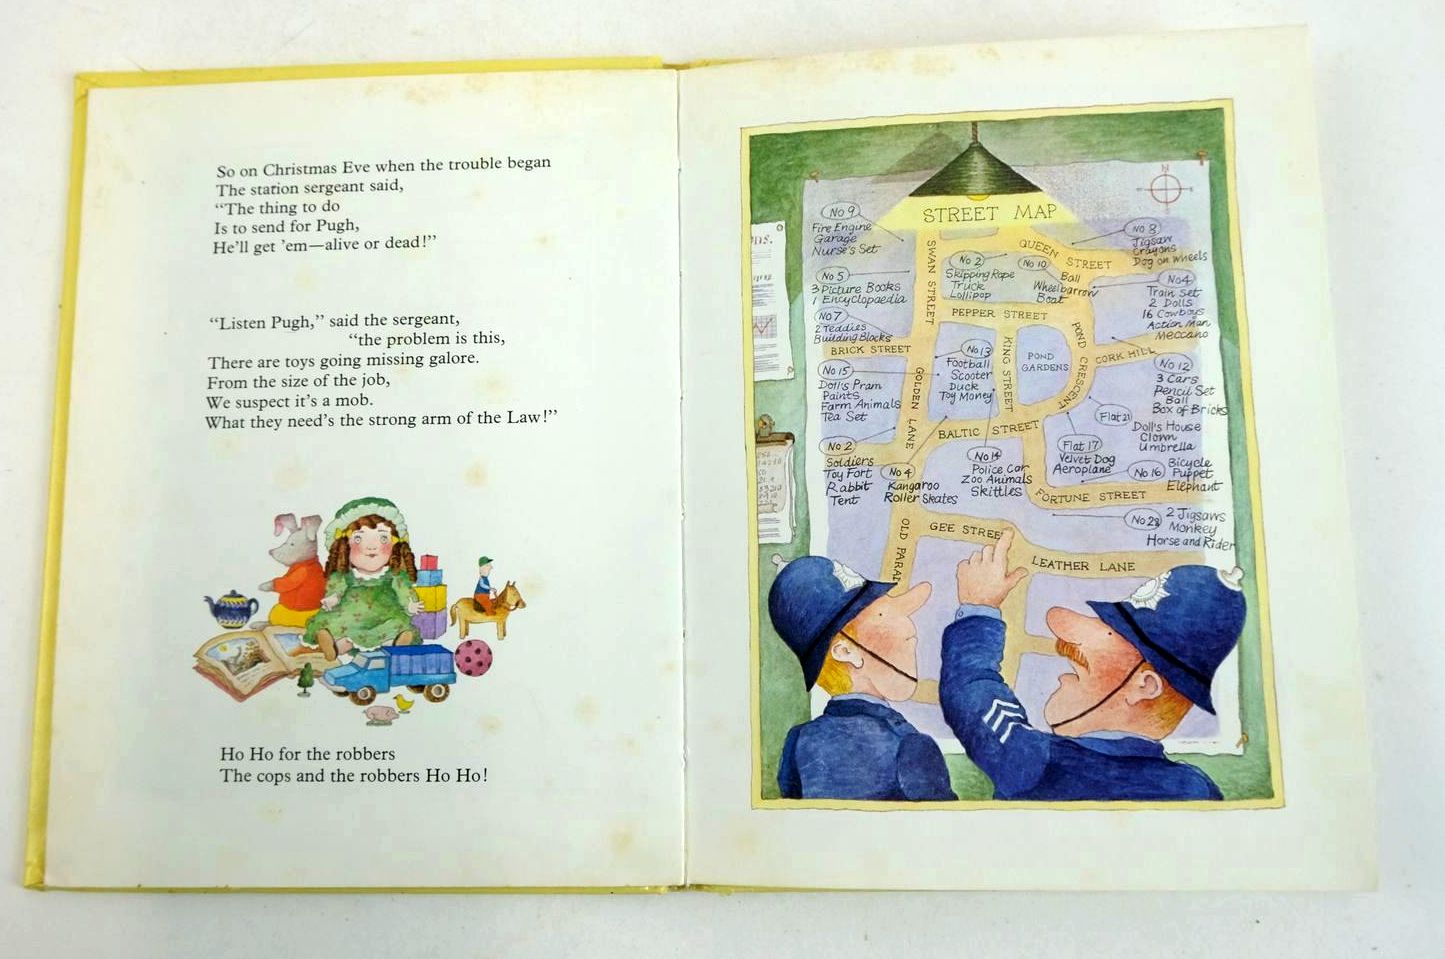 So on Christmas Eve when the trouble began
The station sergeant said,
“The thing to do
Is to send for Pugh,
He’ll get ’em—alive or dead!”
“Listen Pugh,” said the sergeant,
“the problem is this,
There are toys going missing galore.
From the size of the job,
We suspect it’s a mob.
What they need’s the strong arm of the Law!”
Ho Ho for the robbers
The cops and the robbers Ho Ho!
STREET MAP
N
No 9
Fire Engine
Garage
Nurse's Set
No 5
3 Picture Books
1 Encyclopaedia
No 7
2 Teddies
Building Blocks
BRICK STREET
No 15
Doll's Pram
Paints
Farm Animals
Tea Set
No 2
Soldiers
Toy Fort
Rabbit
Tent
No 4
Kangaroo
Roller Skates
SWAN STREET
GOLDEN LANE
OLD PARA
QUEEN STREET
No 2
Skipping Rope
Truck
Lollipop
No 10
Ball
Wheelbarrow
Boat
PEPPER STREET
KING STREET
POND
GARDENS
POND CRESCENT
No 13
Football
Scooter
Duck
Toy Money
BALTIC STREET
No 14
Police Car
Zoo Animals
Skittles
No 8
Jigsaw
Crayons
Dog on wheels
No 4
Train Set
2 Dolls
16 Cowboys
Action Man
Meccano
CORK HILL
No 12
3 Cars
Pencil Set
Ball
Box of Bricks
Flat 21
Doll's House
Clown
Umbrella
Flat 17
Velvet Dog
Aeroplane
No 16
Bicycle
Puppet
Elephant
FORTUNE STREET
No 28
2 Jigsaws
Monkey
Horse and Rider
GEE STREE
LEATHER LANE